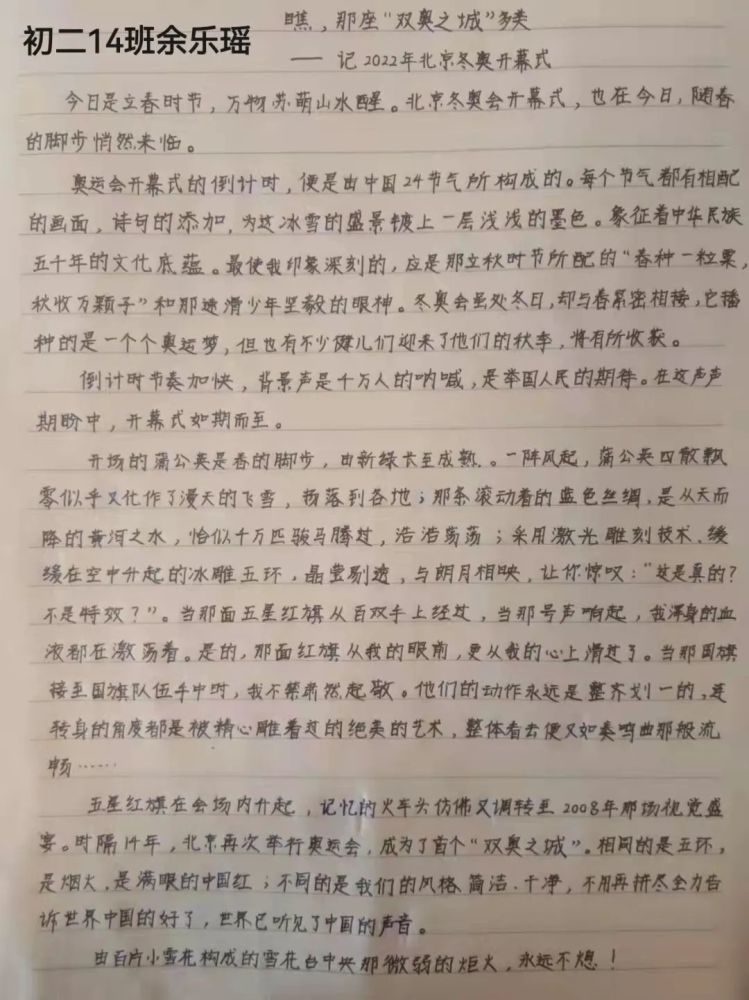 瞧，那座“双奥之城”多美
初二14班余乐瑶
—— 记2022年北京冬奥开幕式
今日是立春时节，万物苏萌山水醒。北京冬奥会开幕式，也在今日，随春
的脚步悄然来临。
奥运会开幕式的倒计时，便是由中国24节气所构成的。每个节气都有相配
的画面，诗句的添加，为这冰雪的盛景镀上一层浅浅的墨色。象征着中华民族
五千年的文化底蕴。最使我印象深刻的，应是那立秋时节所配的“春种一粒粟，
秋收万颗子”和那速滑少年坚毅的眼神。冬奥会虽处冬日，却与春紧密相接，它播
种的是一个个奥运梦，但也有不少健儿们迎来了他们的秋季，将有所收获。
倒计时节奏加快，背景声是千万人的呐喊，是举国人民的期待。在这声声
期盼中，开幕式如期而至。
开场的蒲公英是春的脚步，由新绿长至成熟.。一阵风起，蒲公英四散飘
零似乎又化作了漫天的飞雪，扬落到各地；那条滚动着的蓝色丝绸，是从天而
降的黄河之水，恰似千万匹骏马腾过，浩浩荡荡；采用激光雕刻技术、缓
缓在空中升起的冰雕五环，晶莹剔透，与朗月相映，让你惊叹：“这是真的？
不是特效？”。当那面五星红旗从百双手上经过，当那号声响起，我浑身的血
液都在激荡着。是的，那面红旗从我的眼前，更从我的心上滑过了。当那国旗
接至国旗队伍手中时，我不禁肃然起敬。他们的动作永远是整齐划一的，连
转身的角度都是被精心雕着过的绝美的艺术，整体看去便又如奏鸣曲那般流
畅……
五星红旗在会场内升起，记忆的火车头仿佛又调转至2008年那场视觉盛
宴。时隔14年，北京再次举行奥运会，成为了首个“双奥之城”。相同的是五环，
是烟火，是满眼的中国红；不同的是我们的风格简洁、干净，不用再拼尽全力告
诉世界中国的好了，世界已听见了中国的声音。
由百片小雪花构成的雪花台中央那微弱的炬火，永远不熄！